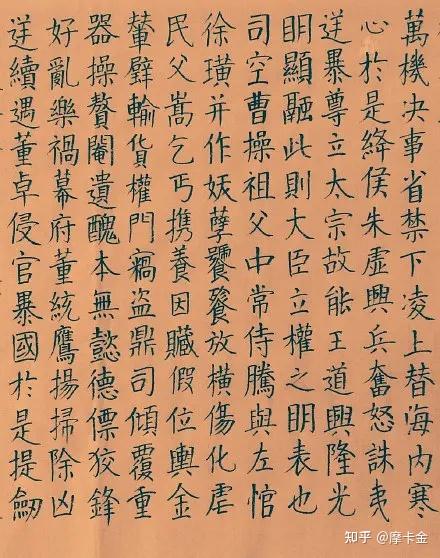 萬機决事省禁下凌上替海内寒
心於是絳侯朱虛興兵奮怒誅夷
逆暴尊立太宗故能王道興隆光
明顯融此則大臣立權之明表也
司空曹操祖父中常侍騰與左悺
徐璜并作妖孽饕餮放横傷化虐
民父嵩乞丐携養因贓假位輿金
輦璧輸貨權門竊盗鼎司傾覆重
器操贅閹遺醜本無懿德僄狡鋒
好亂樂禍幕府董統鷹揚掃除凶
逆續遇董卓侵官暴國於是提劔
知乎 @摩卡金